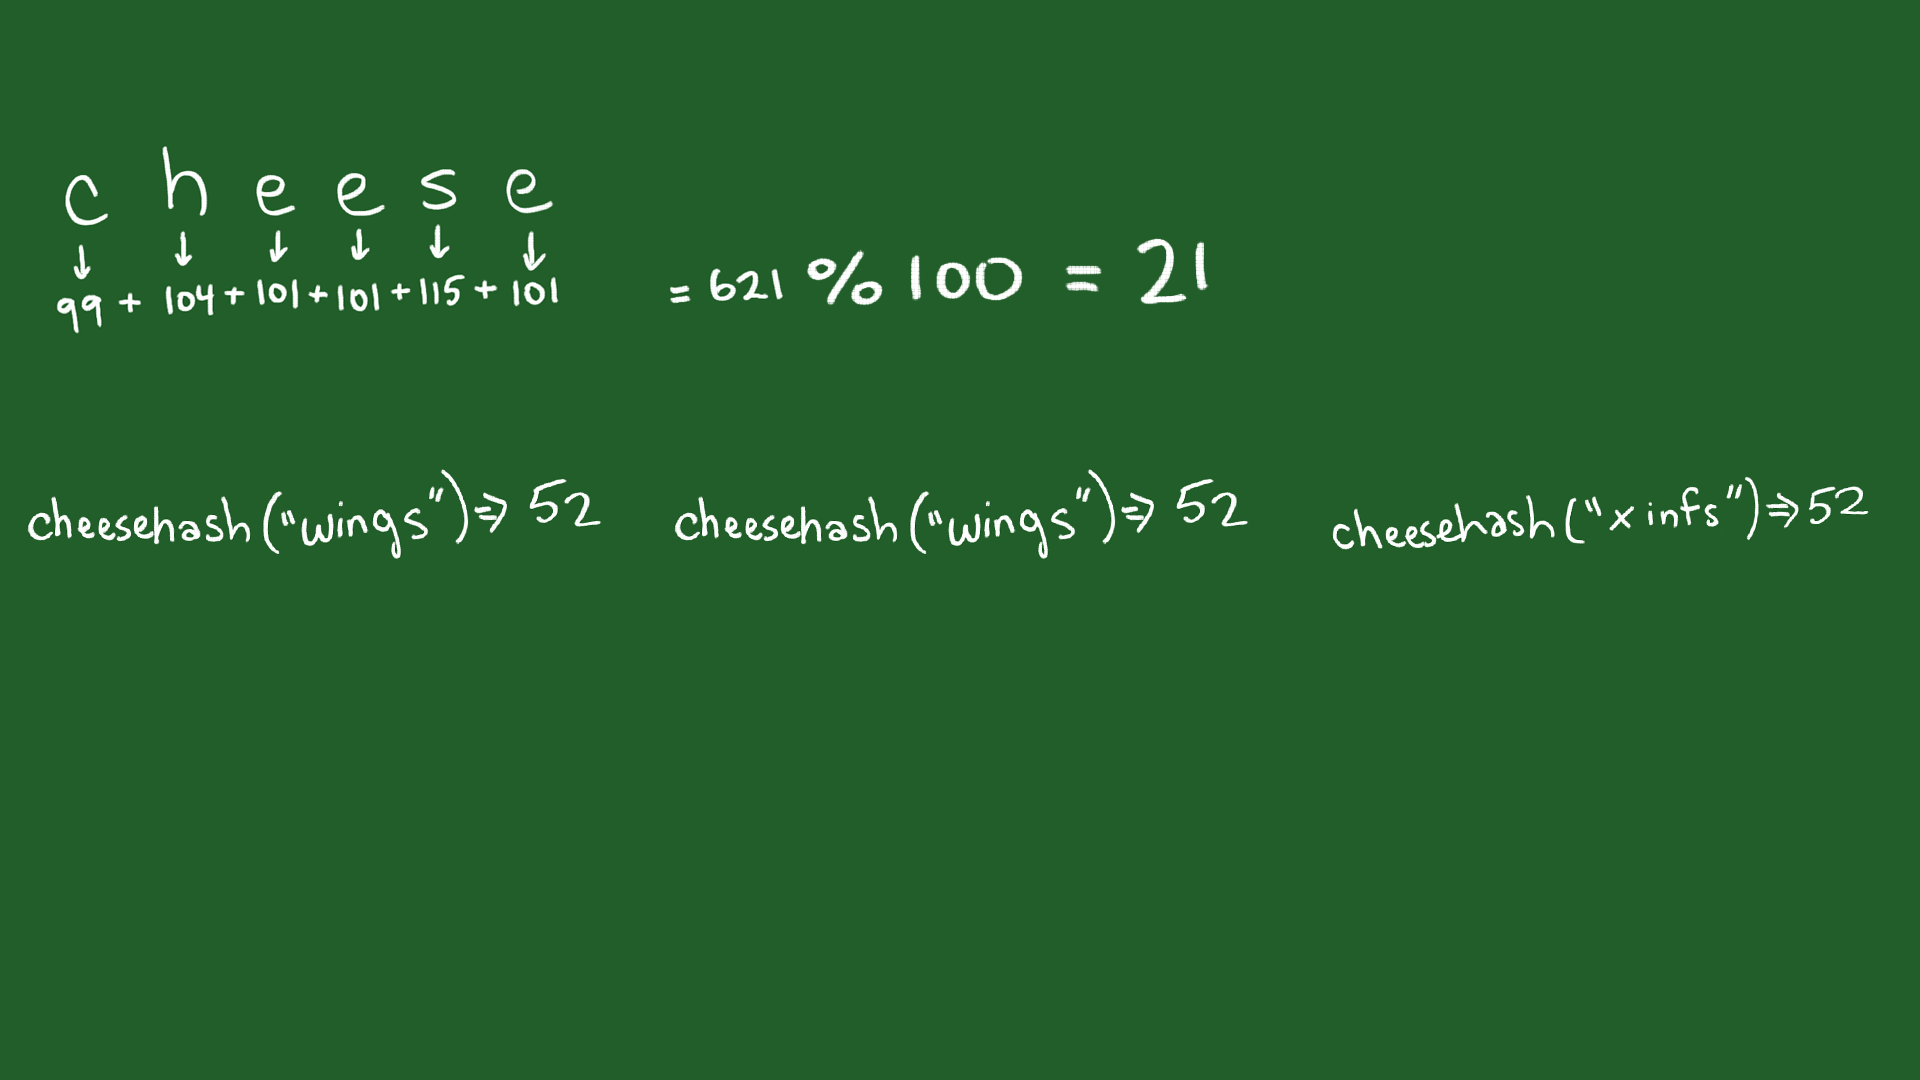 cheese
↓ ↓ ↓ ↓ ↓ ↓
99 + 104 + 101 + 101 + 115 + 101 = 621 % 100 = 21
cheesehash("wings") => 52 cheesehash("wings") => 52 cheesehash("xinfs") => 52